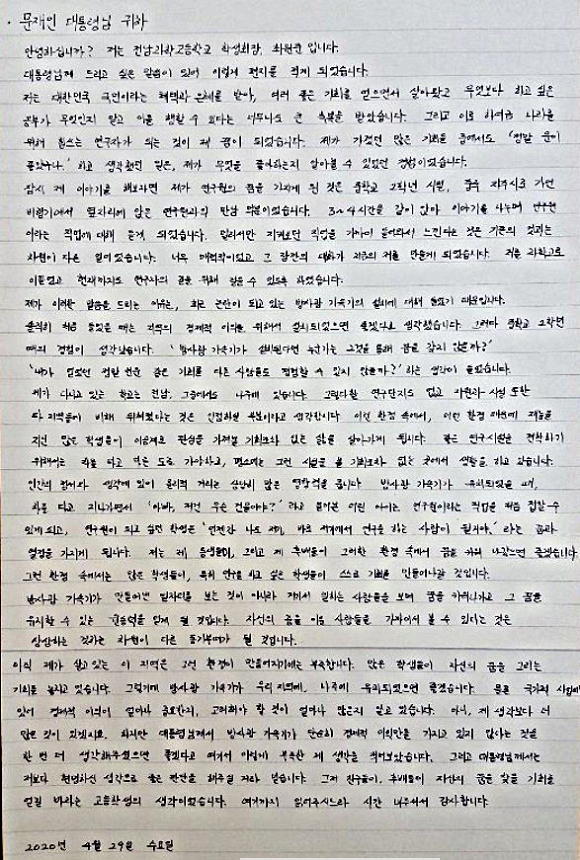 · 문재인 대통령님 귀하
안녕하십니까? 저는 전남과학고등학교 학생회장, 입니다.
대통령님께 드리고 싶은 말씀이 있어 이렇게 편지를 적게 되었습니다.
저는 대한민국 국민이라는 혜택과 은혜를 받아, 여러 좋은 기회를 얻으면서 살아왔고 무엇보다 하고 싶은
공부가 무엇인지 알고 이를 행할 수 있다는 너무나도 큰 축복을 받았습니다. 그리고 이로 하여금 나라를
위해 힘쓰는 연구자가 되는 것이 제 꿈이 되었습니다. 제가 가졌던 많은 기회들 중에서도 '정말 운이
좋았구나.' 하고 생각했던 일은, 제가 무엇을 좋아하는지 알아갈 수 있었던 경험이었습니다.
잠시 제 이야기를 해보자면 제가 연구원의 꿈을 가지게 된 것은 중학교 2학년 시절, 중국 가던
비행기에서 옆자리에 앉은 연구원과의 만남 덕분이었습니다. 3~4시간을 같이 앉아 이야기를 나누며 연구원
이라는 직업에 대해 듣게 되었습니다. 멀리서만 지켜보던 직업을 가까이 들여다보고 느낀다는 것은 기존의 것과는
차원이 다른 일이었습니다. 너무 매력적이었고 그 잠깐의 대화가 지금의 저를 만들게 되었습니다. 저를 과학고로
이끌었고 현재까지도 연구자의 꿈을 위해 걸을 수 있도록 하였습니다.
제가 이러한 말씀을 드리는 이유는, 최근 논란이 되고 있는 방사광 가속기의 설치에 대해 들었기 때문입니다.
솔직히 처음 들었을 때는 지역의 경제적 이익을 위해서 설치되었으면 좋겠다고 생각했습니다. 그러다 중학교 2학년
때의 경험이 생각났습니다. '방사광 가속기가 설치된다면 누군가는 그것을 통해 꿈을 갖지 않을까?'
'내가 얻었던 정말 운을 좋은 기회를 다른 사람들도 경험할 수 있지 않을까?' 라는 생각이 들었습니다.
제가 다니고 있는 학교는 전남, 그중에서도 나주에 있습니다. 그럴다할 연구단지도 없고 시설 또한
타 지역들에 비해 뒤처졌다는 것은 인정하실 부분이라고 생각합니다. 이런 환경 속에서, 이런 환경 때문에 재능을
지닌 많은 학생들이 이공계로 관심을 가져볼 기회조차 없는 삶을 살아가게 됩니다. 좋은 연구시설을 견학하기
위해서는 차를 타고 먼 도로 가야하고, 평소에는 그런 시설을 볼 기회조차 없는 곳에서 생활을 하고 있습니다.
인간의 경험과 생각에 있어 물리적 거리는 상당히 많은 영향력을 줍니다. 방사광 가속기가 유치되었을 때,
차를 타고 지나가면서 '아빠, 저건 무슨 건물이야?' 라고 물어본 어린 아이는 연구원이라는 직업을 처음 접할 수
있게 되고, 연구원이 되고 싶던 학생은 '언젠간 나도 저기, 바로 저기에서 연구를 하는 사람이 될거야.' 라는 꿈과
열정을 가지게 됩니다. 저는 제 동생들이, 그리고 제 후배들이 그러한 환경 속에서 꿈을 키워 나갔으면 좋겠습니다.
그런 환경 속에서는 많은 학생들이, 특히 연구를 하고 싶은 학생들이 스스로 기회를 만들어나갈 것입니다.
방사광 가속기가 만들어낸 일자리를 보는 것이 아니라 거기서 일하는 사람들을 보며 꿈을 키워나가고 그 꿈을
유지할 수 있는 원동력을 얻게 될 것입니다. 자신의 꿈을 이룬 사람들을 가까이서 볼 수 있다는 것은
상상하는 것과는 차원이 다른 동기부여가 될 것입니다.
아직 제가 살고 있는 이 지역은 그런 환경이 만들어지기에는 부족합니다. 많은 학생들이 자신의 꿈을 그리는
기회를 놓치고 있습니다. 그렇기에 방사광 가속기가 우리 지역에, 나주에 유치되었으면 좋겠습니다. 물론 국가적 사업에
있어 경제적 이익이 얼마나 중요한지, 고려해야 할 것이 얼마나 많은지 알고 있습니다. 아니, 제 생각보다 더
많은 것이 있겠지요. 하지만 대통령님께서 방사광 가속기가 단순히 경제적 이익만을 가지고 있지 않다는 것을
한 번 더 생각해주셨으면 좋겠다고 여겨서 이렇게 부족한 제 생각을 적어보았습니다. 그리고 대통령님께서는
저보다 현명하신 생각으로 좋은 판단을 해주실 거라 믿습니다. 그저 친구들이, 후배들이 자신의 꿈을 찾을 기회를
얻길 바라는 고등학생의 생각이었습니다. 여기까지 읽어주시느라 시간 내주셔서 감사합니다.
2020년 4월 29일 수요일